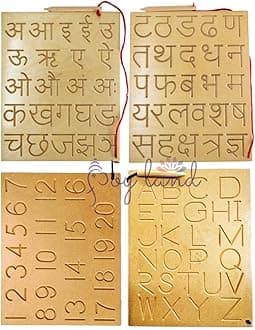 अ आ इ ई उ
ऊ ऋ ए ऐ
ओ औ अं अः
क ख ग घ ङ
च छ ज झ ञ
ट ठ ड ढ ण
त थ द ध न
प फ ब भ म
य र ल व श ष
स ह क्ष त्र ज्ञ
1 2 3 4 5 6 7
8 9 10 11 12
13 14 15 16
17 18 19 20
A B C D
E F G H I
J K L M
N O P Q
R S T U V
W X Y Z